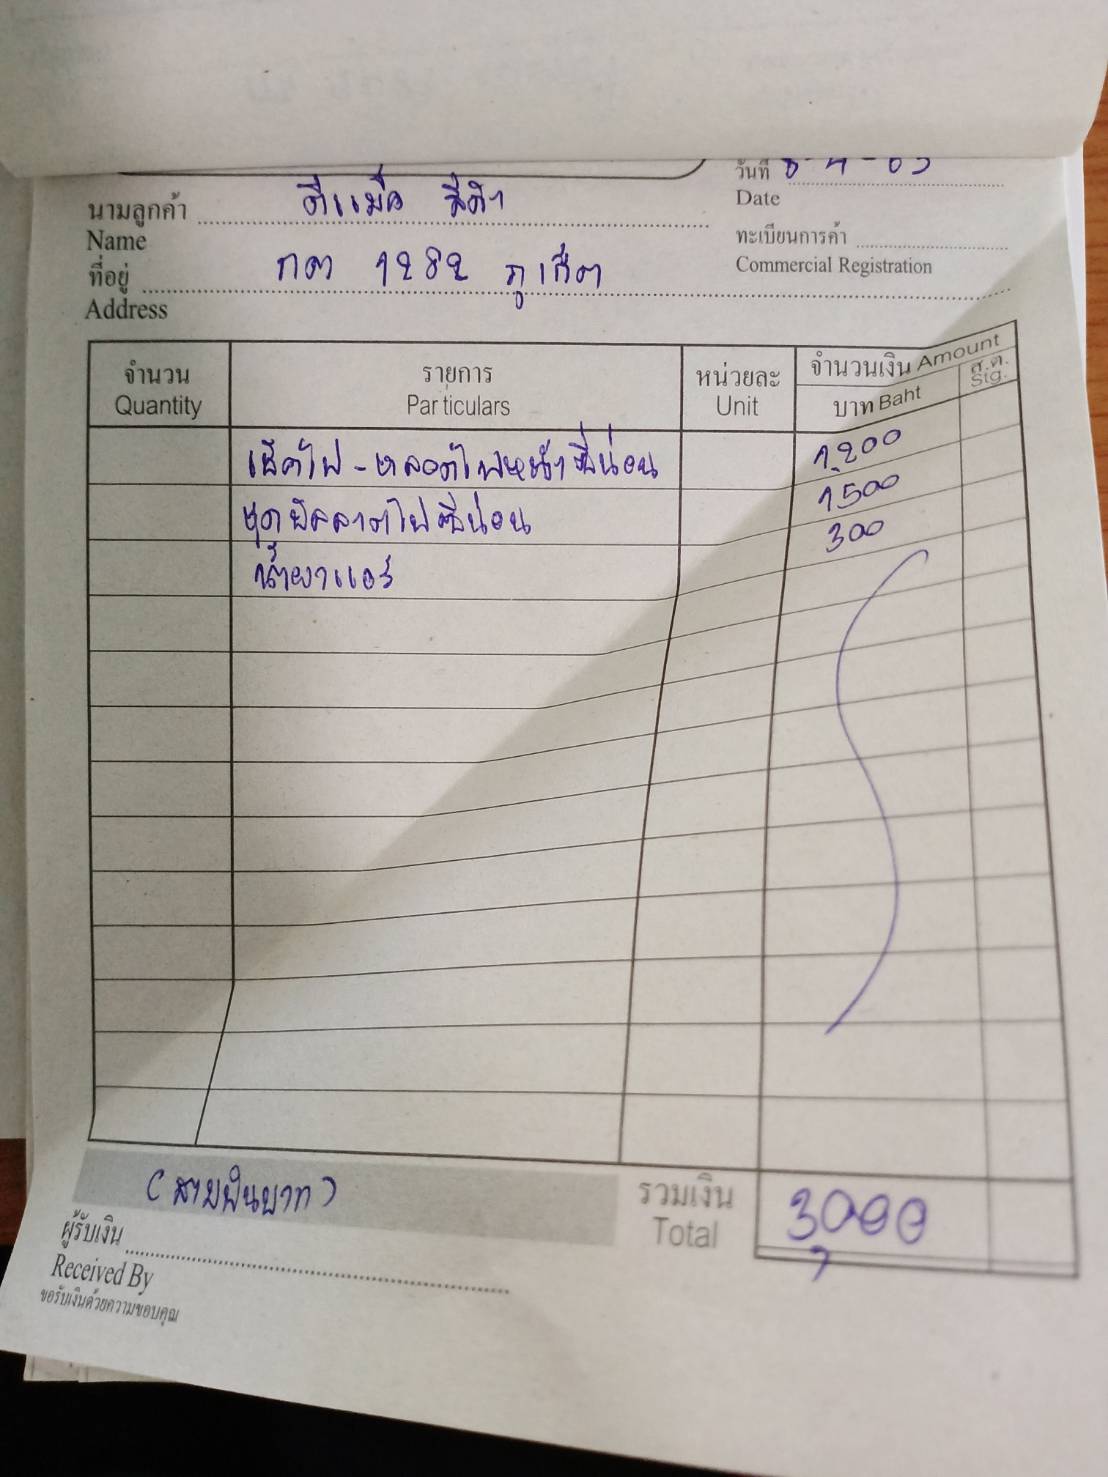 วันที่ 8-4-65
Date
นามลูกค้า ดีแม็ค สีดำ
Name
ทะเบียนการค้า
Commercial Registration
ที่อยู่ กต 1282 ภูเก็ต
Address
จำนวน รายการ หน่วยละ จำนวนเงิน Amount
Quantity Particulars Unit บาท Baht ส.ต. Stg.
เช็คไฟ - หลอดไฟหน้าซีน่อน 1,200
ชุดบัลลาสไฟซีน่อน 1500
น้ำยาแอร์ 300
(สามพันบาท) รวมเงิน 3,000
Total
ผู้รับเงิน
Received By
ขอรับเงินด้วยความขอบคุณ